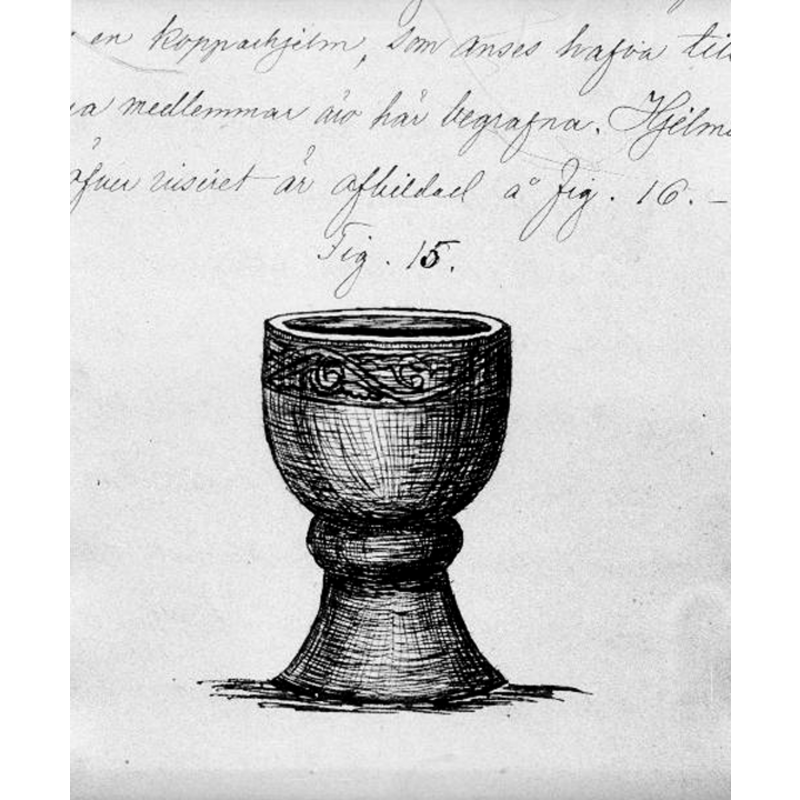 en kopparhjelm, som anses hafva till
medlemmar äro här begrafna. Hjelm
öfver visiret är afbildad å Fig. 16. –
Fig. 15.